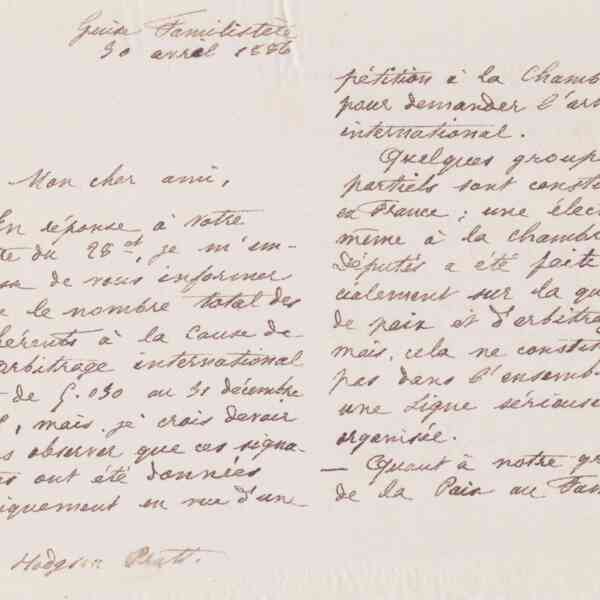 Guise Familistère
30 avril 1886
Mon cher ami,
En réponse à votre
du 28 ct, je m'em-
de vous informer
le nombre total des
hérents à la cause de
arbitrage international
de 9.030 au 31 décembre
, mais je crois devoir
observer que ces signa-
ont été données
iquement en vue d'une
Hodgson Pratt.
pétition à la Chamb
pour demander l'ar
international.
Quelques group
partiels sont consti
en France ; une élec
même à la Chambr
Députés a été faite
cialement sur la qu
de paix et d'arbitrag
mais, cela ne constit
pas dans l'ensemb
une Ligue sérieuse
organisée.
— Quant à notre gr
de la Paix au Fam